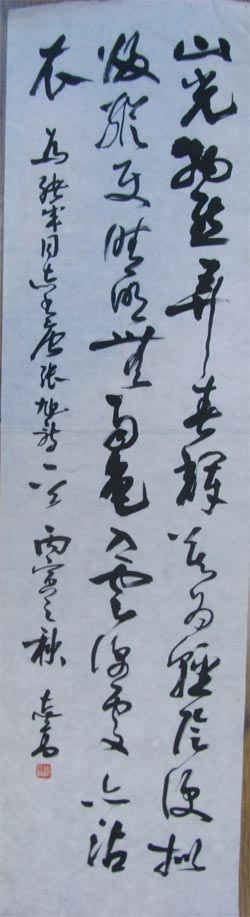 山光物態弄春輝莫为輕陰便擬
歸縱使晴明無雨色入雲深處亦沾
衣 为同志書唐張旭詩一首 丙寅之秋